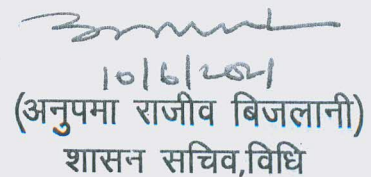 10/6/2021
(अनुपमा राजीव बिजलानी)
शासन सचिव,विधि